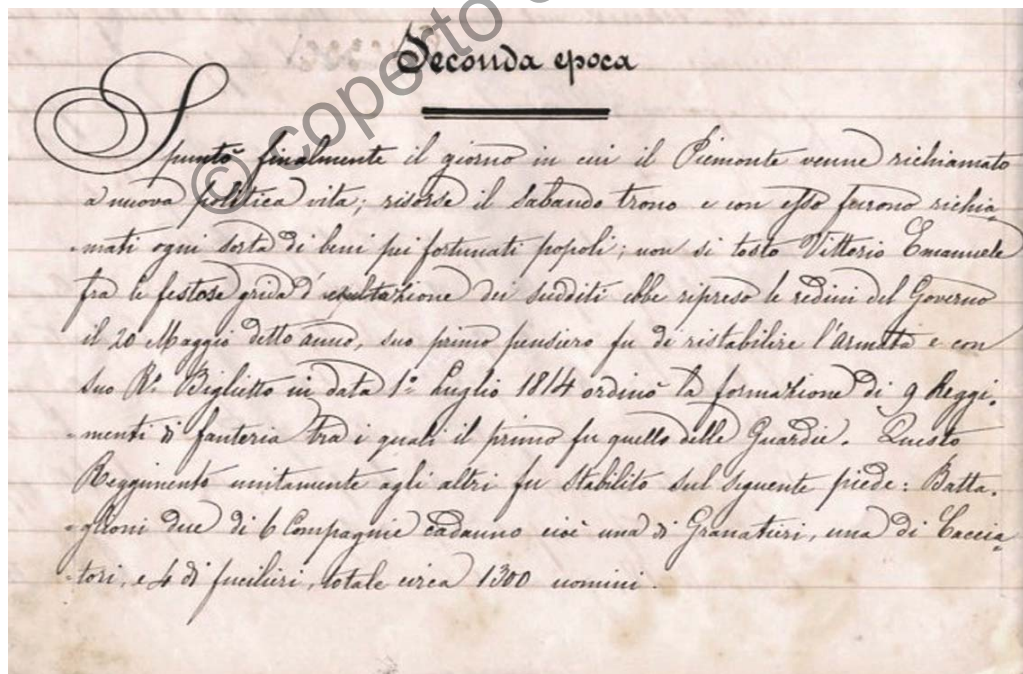 © coperto
Seconda epoca
Spuntò finalmente il giorno in cui il Piemonte venne richiamato
a nuova politica vita; risorse il sabaudo trono e con esso furono richia-
-mati ogni sorta di beni pei fortunati popoli; non sì tosto Vittorio Emanuele
fra le festose grida d' esultazione dei sudditi ebbe ripreso le redini del Governo
il 20 Maggio detto anno, suo primo pensiero fu di ristabilire l'armata e con
suo R.º Biglietto in data 1º Luglio 1814 ordinò la formazione di 9 Reggi-
-menti di fanteria tra i quali il primo fu quello delle Guardie. Questo
Reggimento unitamente agli altri fu stabilito sul seguente piede: Batta-
-glioni due di 6 Compagnie cadauno cioè una di Granatieri, una di Caccia-
-tori, e 4 di fucilieri, totale circa 1300 uomini.